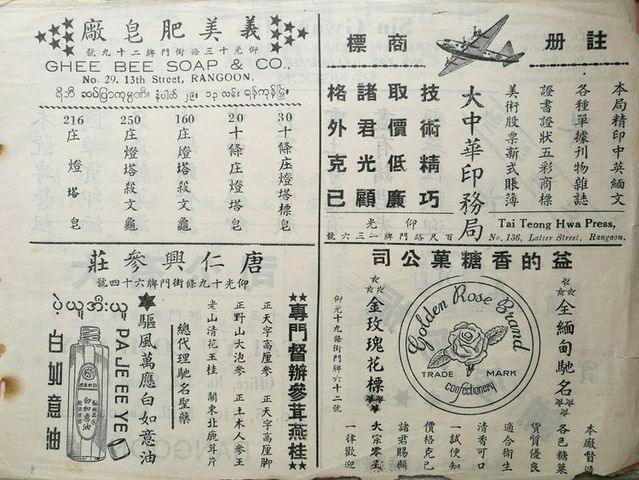 註册商標
本局精印中英緬文
各種單據刊物雜誌
證書證狀五彩商標
美術股票新式賬簿
大中華印務局
技術精巧
取價低廉
諸君光顧
格外克己
仰光
百尺路門牌一三六號
Tai Teong Hwa Press,
No, 136, Latter Street, Rangoon.
義美肥皂廠
仰光十三條街門牌二十九號
GHEE BEE SOAP & CO.,
No. 29. 13th Street, RANGOON.
ဂျီဘီ ဆပ်ပြာကုမ္ပဏီ။ နံပါတ် ၂၉၊ ၁၃ လမ်း၊ ရန်ကုန်မြို့။
30 十條庄燈塔標皂
20 十條庄燈塔皂
160 庄燈塔殺文龜
250 庄燈塔殺文龜
216 庄燈塔皂
益的香糖菓公司
全緬甸馳名
Golden Rose Brand
TRADE MARK
Confectionery
金玫瑰花標
仰光十九條街門牌六十二號
本廠督造
各色糖菓
貨質優良
適合衛生
清香可口
一試便知
價格克己
諸君賜顧
大宗零沽
一律歡迎
唐仁興參莊
仰光十九條街門牌六十四號
專門督辦參茸燕桂
正天字高厘參 正天字高厘脚
正野山大泡參 正土木人參王
老山清花玉桂 關東北鹿茸片
總代理馳名聖藥
驅風萬應白如意油
PAJEE EYE
ပဲ့ယူအီးယူး
白如意油
白如意油